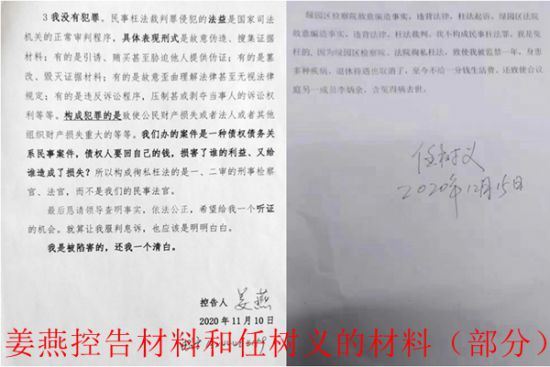 3 我没有犯罪。民事枉法裁判罪侵犯的法益是国家司
法机关的正常审判程序,具体表现形式是故意伪造、搜集证据
材料;有的是引诱、贿买甚至胁迫他人提供伪证;有的是篡
改、毁灭证据材料;有的是故意歪曲理解法律甚至无视法律
规定;有的是违反诉讼程序,压制甚至剥夺当事人的诉讼权
利等等。构成犯罪的是致使公民财产损失或者法人或者其他
组织财产损失重大的等等。我们办的案件是一种债权债务关
系民事案件,债权人要回自己的钱,损害了谁的利益、又给
谁造成了损失?所以构成徇私枉法的是一、二审的刑事检察
官、法官,而不是我们的民事法官。
最后恳请领导查明事实,依法公正,希望给我一个听证
的机会。就算让我服判息诉,也应该是明明白白。
我是被陷害的,还我一个清白。
控告人 姜燕
2020 年 11 月 10 日
绿园区检察院故意编造事实,违背法律,枉法起诉。绿园区法院
故意编造事实,违背法律,枉法裁判。我不构成民事枉法罪。我是无
罪的。因为绿园区检察院、法院徇私枉法,致使我被监禁一年,身患
多种疾病,退休待遇也取消了,至今不给一分钱生活费。还致使合议
庭另一成员李炳余,含冤得病去世。
任树义
2020年12月15日
姜燕控告材料和任树义的材料(部分)